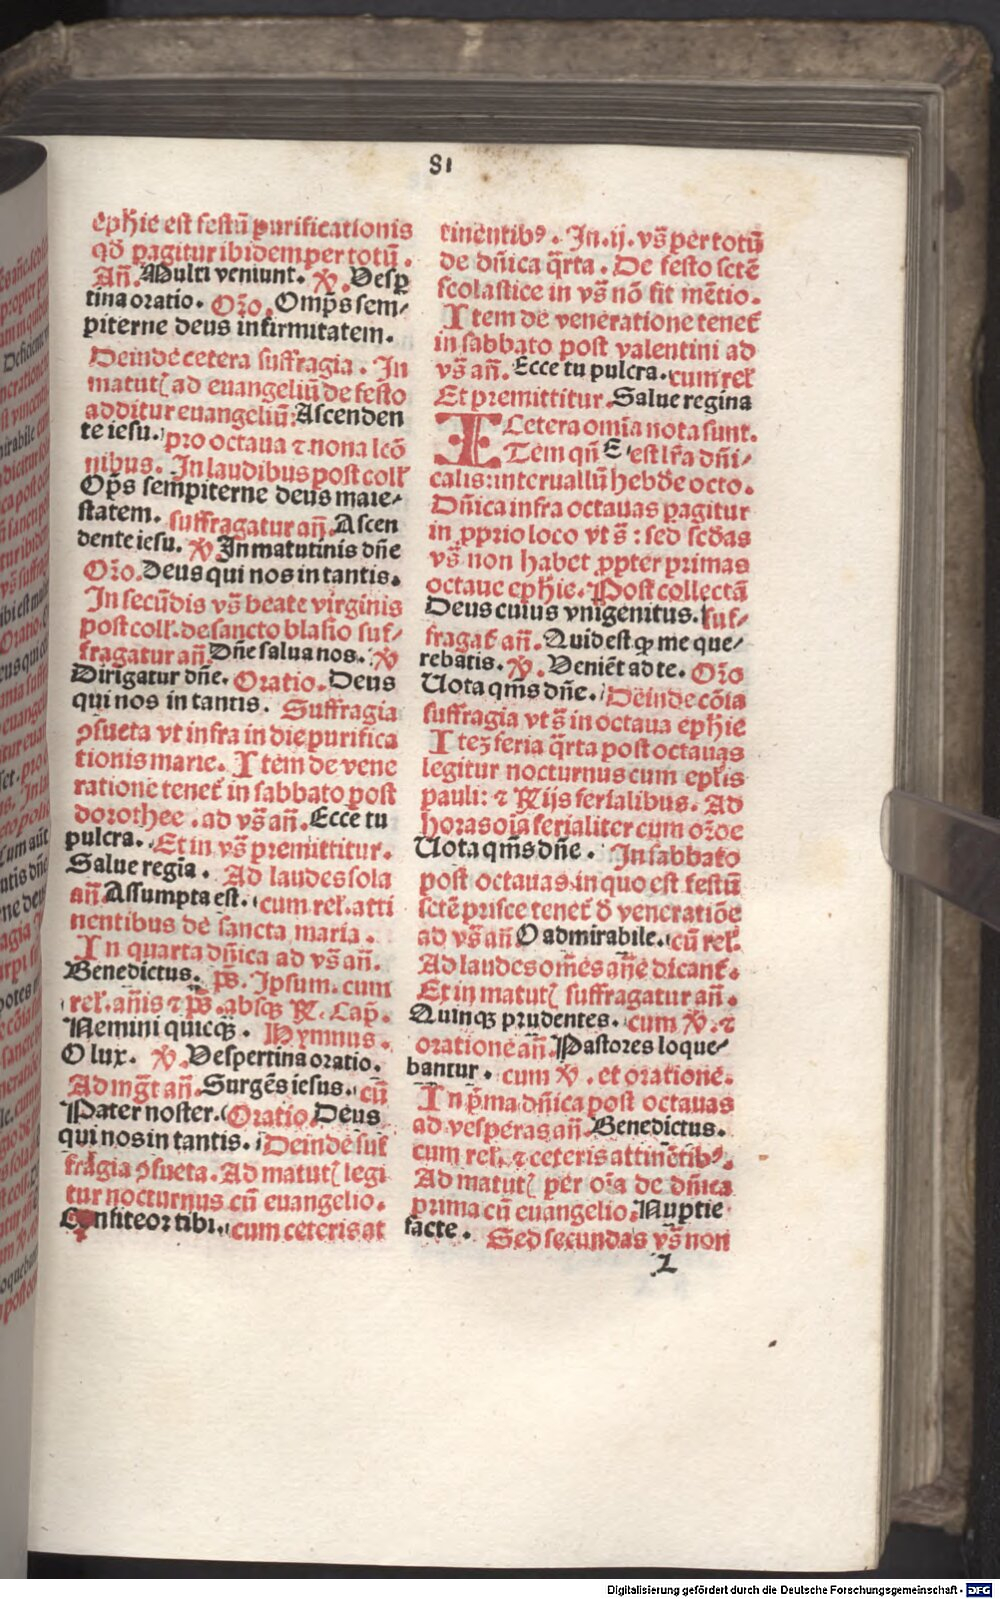 81
epħie est festū purificationis
qđ pagitur ibidem per totū.
Añ. Multi veniunt. ꝟ. Vesp
tina oratio. Oro. Omps sem⸗
piterne deus infirmitatem.
Deinde cetera suffragia. In
matut ad euangeliū de festo
additur euangeliū: Ascenden
te iesu. pro octaua ⁊ nona leō
nibus. In laudibus post coll
Ops sempiterne deus maie⸗
statem. suffragatur añ. Ascen
dente iesu. ꝟ In matutinis dñe
Oro. Deus qui nos in tantis.
In secūdis vs̄ beate virginis
post coll. de sancto blasio suf⸗
fragatur añ Dñe salua nos. ꝟ
Dirigatur dñe. Oratio. Deus
qui nos in tantis. Suffragia
ꝯsueta vt infra in die purifica
tionis marie. Item de vene
ratione tenet in sabbato post
dorothee. ad vs̄ añ. Ecce tu
pulcra. Et in vs̄ premittitur.
Salue regīa. Ad laudes sola
añ Assumpta est. cum rel. atti
nentibus de sancta maria.
In quarta dñica ad vs̄ añ.
Benedictus. ps̄. Ipsum. cum
rel. añis ⁊ ps̄. absqꝫ ℞. Cap.
Nemini quicqꝫ. Hymnus.
O lux. ꝟ. Vespertina oratio.
Ad mgt añ. Surgēs iesus. cū
Pater noster. Oratio. Deus
qui nos in tantis. Deinde suf
fragia ꝯsueta. Ad matut legi
tur nocturnus cū euangelio.
Confiteor tibi. cum ceteris at
tinentibꝰ. In. ij. vs̄ per totū
de dñica q̄rta. De festo scte
scolastice in vs̄ nō fit mētio.
Item de veneratione tenet
in sabbato post valentini ad
vs̄ añ. Ecce tu pulcra. cum rel
Et premittitur. Salue regina
Cetera omīa nota sunt.
ITem qñ E est lr̄a dñi⸗
calis: interuallū hebde octo.
Dñica infra octauas pagitur
in ꝓprio loco vt s̄: sed scđas
vs̄ non habet ꝓpter primas
octaue epħie. Post collectā
Deus cuius vnigenitus. suf⸗
fragat añ. Quid est ꝙ me que⸗
rebatis. ꝟ. Veniēt ad te. Oro
Uota qms dñe. Deinde cōia
suffragia vt s̄ in octaua epħie
Iteꝫ feria q̄rta post octauas
legitur nocturnus cum eplis
pauli: ⁊ ℞ijs ferialibus. Ad
horas oīa ferialiter cum oroe
Uota qms dñe. In sabbato
post octauas in quo est festū
scte prisce tenet đ veneratiōe
ad vs̄ añ O admirabile. cū rel.
Ad laudes omēs añe dicant.
Et in matut suffragatur añ.
Quinqꝫ prudentes. cum ꝟ. ⁊
oratione añ. Pastores loque⸗
bantur. cum ꝟ. et oratione.
In pma dñica post octauas
ad vesperas añ. Benedictus.
cum rel. ⁊ ceteris attinētibꝰ.
Ad matut per oīa de dñica
prima cū euangelio. Nuptie
facte. Sed secundas vs̄ non
L
Digitalisierung gefördert durch die Deutsche Forschungsgemeinschaft - DFG